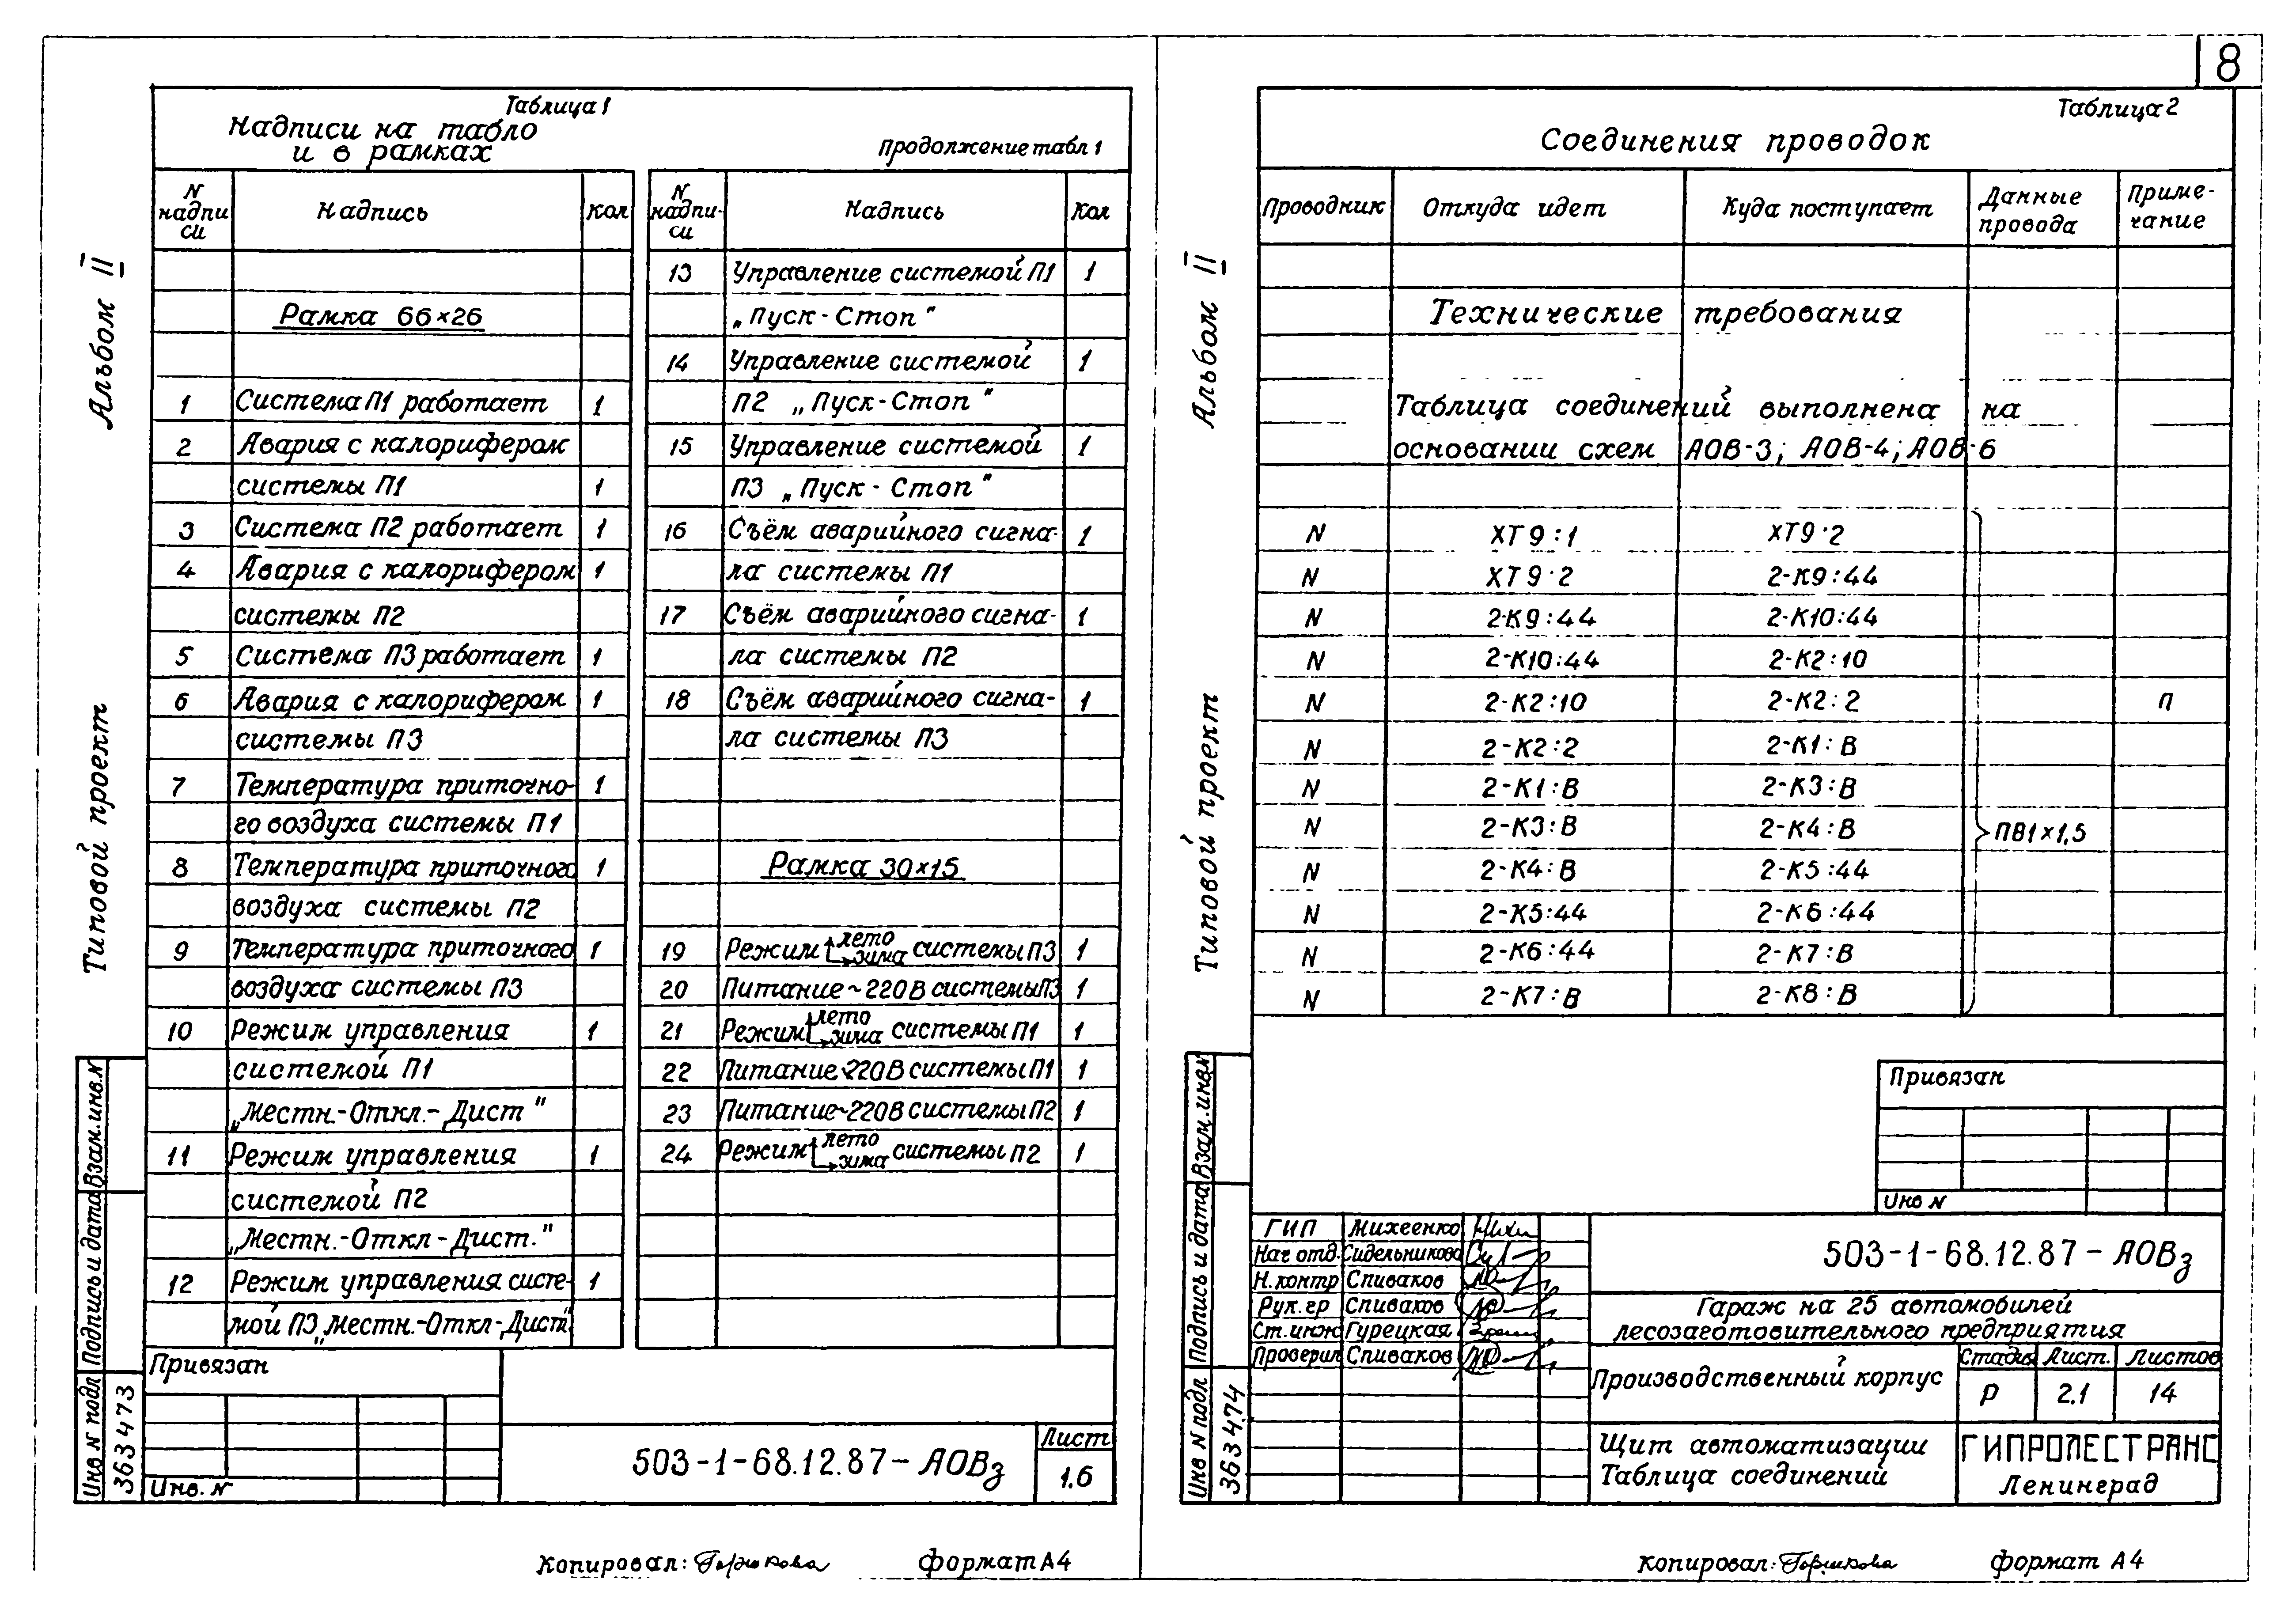 8
Альбом II
Типовой проект
Таблица 1
Надписи на табло
и в рамках
Продолжение табл 1
N надпи си | Надпись | Кол
Рамка 66×26
1 Система П1 работает 1
2 Авария с калорифером
системы П1 1
3 Система П2 работает 1
4 Авария с калорифером 1
системы П2
5 Система П3 работает 1
6 Авария с калорифером 1
системы П3
7 Температура приточно- 1
го воздуха системы П1
8 Температура приточного 1
воздуха системы П2
9 Температура приточного 1
воздуха системы П3
10 Режим управления 1
системой П1
„Местн.-Откл.-Дист"
11 Режим управления 1
системой П2
„Местн.-Откл-Дист."
12 Режим управления систе- 1
мой П3 „Местн.-Откл-Дист."
N надпи- си | Надпись | Кол
13 Управление системой П1 1
„Пуск-Стоп"
14 Управление системой 1
П2 „Пуск-Стоп"
15 Управление системой 1
П3 „Пуск-Стоп"
16 Съём аварийного сигна- 1
ла системы П1
17 Съём аварийного сигна- 1
ла системы П2
18 Съём аварийного сигна- 1
ла системы П3
Рамка 30×15
19 Режим лето зима системы П3 1
20 Питание ~220В системы П3 1
21 Режим лето зима системы П1 1
22 Питание ~220В системы П1 1
23 Питание ~220В системы П2 1
24 Режим лето зима системы П2 1
Привязан
Инв. N
503-1-68.12.87-АОВз
Лист
1.6
Взам.инв.N
Подпись и дата
Инв N подл
363473
Копировал: Горшкова
формат А4
Альбом II
Типовой проект
Таблица 2
Соединения проводок
Проводник | Откуда идет | Куда поступает | Данные провода | Приме- чание
Технические требования
Таблица соединений выполнена на
основании схем АОВ-3; АОВ-4; АОВ-6
N ХТ9:1 ХТ9:2
N ХТ9:2 2-К9:44
N 2-К9:44 2-К10:44
N 2-К10:44 2-К2:10
N 2-К2:10 2-К2:2 П
N 2-К2:2 2-К1:В
N 2-К1:В 2-К3:В
N 2-К3:В 2-К4:В ПВ1×1,5
N 2-К4:В 2-К5:44
N 2-К5:44 2-К6:44
N 2-К6:44 2-К7:В
N 2-К7:В 2-К8:В
Привязан
Инв N
ГИП Михеенко
Нач отд. Сидельникова
Н.контр Спиваков
Рук.гр Спиваков
Ст.инж Гурецкая
Проверил Спиваков
503-1-68.12.87-АОВз
Гараж на 25 автомобилей
лесозаготовительного предприятия
Производственный корпус
Стадия Лист. Листов
Р 2.1 14
Щит автоматизации
Таблица соединений
ГИПРОЛЕСТРАНС
Ленинград
Взам.инв.N
Подпись и дата
Инв N подл
363474
Копировал: Горшкова
формат А4